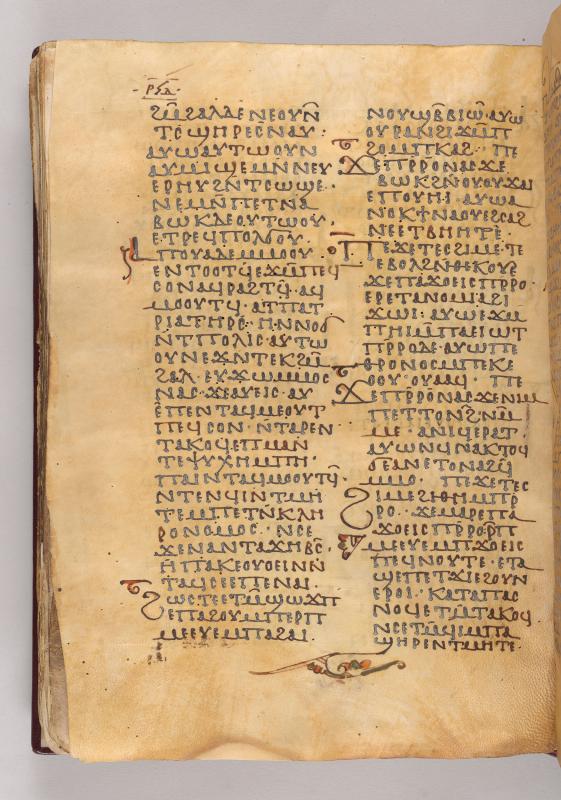 ⲣ̄ⲝ̄ⲇ̄
ϩⲙ̄ϩⲁⲗⲇⲉ ⲛⲉⲟⲩⲛ̄
ⲧⲥϣⲏⲣⲉⲥⲛⲁⲩ·
ⲁⲩⲱⲁⲩⲧⲱⲟⲩⲛ
ⲁⲩⲙⲓϣⲉⲙⲛ̄ⲛⲉⲩ
ⲉⲣⲏⲩϩⲛ̄ⲧⲥⲱϣⲉ·
ⲛⲉⲙⲛ̄ⲡⲉⲧⲛⲁ
ⲃⲱⲕⲇⲉⲟⲩⲧⲱⲟⲩ·
ⲉⲧⲣⲉϥⲡⲟⲗϭⲟⲩ·
ⲁⲡⲟⲩⲁⲇⲉⲙⲙⲟⲟⲩ·
ⲉⲛⲧⲟⲟⲧϥⲉϫⲙ̄ⲡⲉϥ
ⲥⲟⲛⲁϥⲣⲁϩⲧϥ̄·ⲁϥ
ⲙⲟⲟⲩⲧϥ̄·ⲁⲧⲡⲁⲧ
ⲣⲓⲁⲧⲏⲣⲥ̄·ⲛ̄ⲛⲛⲟϭ
ⲛ̄ⲧⲡⲟⲗⲓⲥ·ⲁⲩⲧⲱ
ⲟⲩⲛⲉϫⲛ̄ⲧⲉⲕϩⲙ̄
ϩⲁⲗ·ⲉⲩϫⲱⲙⲙⲟⲥ
ⲛⲁⲥ·ϫⲉⲁⲩⲉⲓⲥ·ⲁⲩ
ⲉ̄ⲡⲉⲛⲧⲁϥⲙⲉⲟⲩⲧ
ⲡⲉϥⲥⲟⲛ·ⲛ̄ⲧⲁⲣⲉⲛ
ⲧⲁⲕⲟϥⲉⲡⲙⲁⲛ̄
ⲧⲉⲯⲩⲭⲏⲙⲡⲏ·
ⲡⲁⲓⲛⲧⲁϥⲙⲟⲟⲩⲧϥ̄·
ⲛⲧⲉⲛϥⲓⲛⲧⲙⲏ
ⲧⲉⲙⲡⲉⲧⲛ̄ⲕⲗⲏ
ⲣⲟⲛⲟⲙⲟⲥ·ⲛⲥⲉ
ϫⲉⲛⲁⲛⲧⲁϫⲏⲃⲥ̄·
ⲏ̄ⲡⲁⲕⲉⲟⲩⲟⲉⲓⲛⲛ̄
ⲧⲁϥⲥⲉⲉⲡⲉⲛⲁⲓ·
ϩⲱⲥⲧⲉⲉⲧⲙ̄ϣⲱϫⲡ̄
ⲉⲡⲁϩⲟⲩⲙⲡⲉⲣⲡ
ⲙⲉⲉⲩⲉⲙⲡⲁϩⲁⲓ·
ⲛⲟⲩϣⲃ̄ⲃⲓⲱ̄·ⲁⲩⲱ
ⲟⲩⲣⲁⲛϩⲓϫⲙ̄ⲡ
ϩⲟⲙⲡⲕⲁϩ· ⲡⲉ
ϫⲉⲡⲣ̄ⲣⲟⲛⲁⲥϫⲉ
ⲃⲱⲕϩⲛ̄ⲟⲩⲟⲩϫⲁⲓ
ⲉⲡⲟⲩⲏⲓ·ⲁⲩⲱⲁ
ⲛⲟⲕϯⲛⲁⲟⲩⲉϩⲥⲁϩ
ⲛⲉⲉⲧⲃⲏⲏⲧⲉ·
ⲡⲉϫⲉⲧⲉⲥϩⲓⲙⲉ·ⲧⲉ
ⲉⲃⲟⲗϩⲛ̄ⲑⲉⲕⲟⲩⲉ
ϫⲉⲡⲁϫⲟⲉⲓⲥⲡⲣ̄ⲣⲟ
ⲉⲣⲉⲧⲁⲛⲟⲙⲓⲁϩⲓ
ϫⲱⲓ·ⲁⲩⲱⲉϫⲙ
ⲡⲏⲓⲙ̄ⲡⲁⲉⲓⲱⲧ
ⲡⲣ̄ⲣⲟⲇⲉ·ⲁⲩⲱⲡⲉ
ⲑⲣⲟⲛⲟⲥⲙⲡⲉⲕⲉ
ⲟⲟⲩ·ⲟⲩⲁⲁϥ· ⲡⲉ
ϫⲉⲡⲣ̄ⲣⲟⲛⲁⲥϫⲉⲛⲓⲙ
ⲡⲉⲧⲧⲟⲛϩⲛ̄ⲙ
ⲙⲉ·ⲁⲛⲓϥⲉⲣⲁⲧ
ⲁⲩⲱⲛϥⲛⲁⲕⲧⲟϥ
ϭⲉⲁⲛⲉⲧⲟⲛⲁϩϥ̄
ⲙⲙⲟ· ⲡⲉϫⲉⲧⲉⲥ
ϩⲓⲙⲉϩⲏⲑⲏⲙⲡⲣ̄
ⲣⲟ·ϫⲉⲙⲁⲣⲉⲡⲁ
ϫⲟⲉⲓⲥⲡⲣ̄ⲣⲟⲣ̄ⲡ
ⲙⲉⲉⲩⲉⲙⲡϫⲟⲉⲓⲥ
ⲡⲉϥⲛⲟⲩⲧⲉ·ⲉⲧⲁ
ϣⲉⲡⲉⲧϫⲓⲉϩⲟⲩⲛ
ⲉⲣⲟⲓ·ⲕⲁⲧⲁⲡⲁⲥ
ⲛⲟϥⲉⲧⲙ̄ⲧⲁⲕⲟϥ
ⲛⲥⲉⲧⲙ̄ϥⲓⲙⲡⲁ
ϣⲏⲣⲉⲛⲧⲙⲏⲧⲉ·